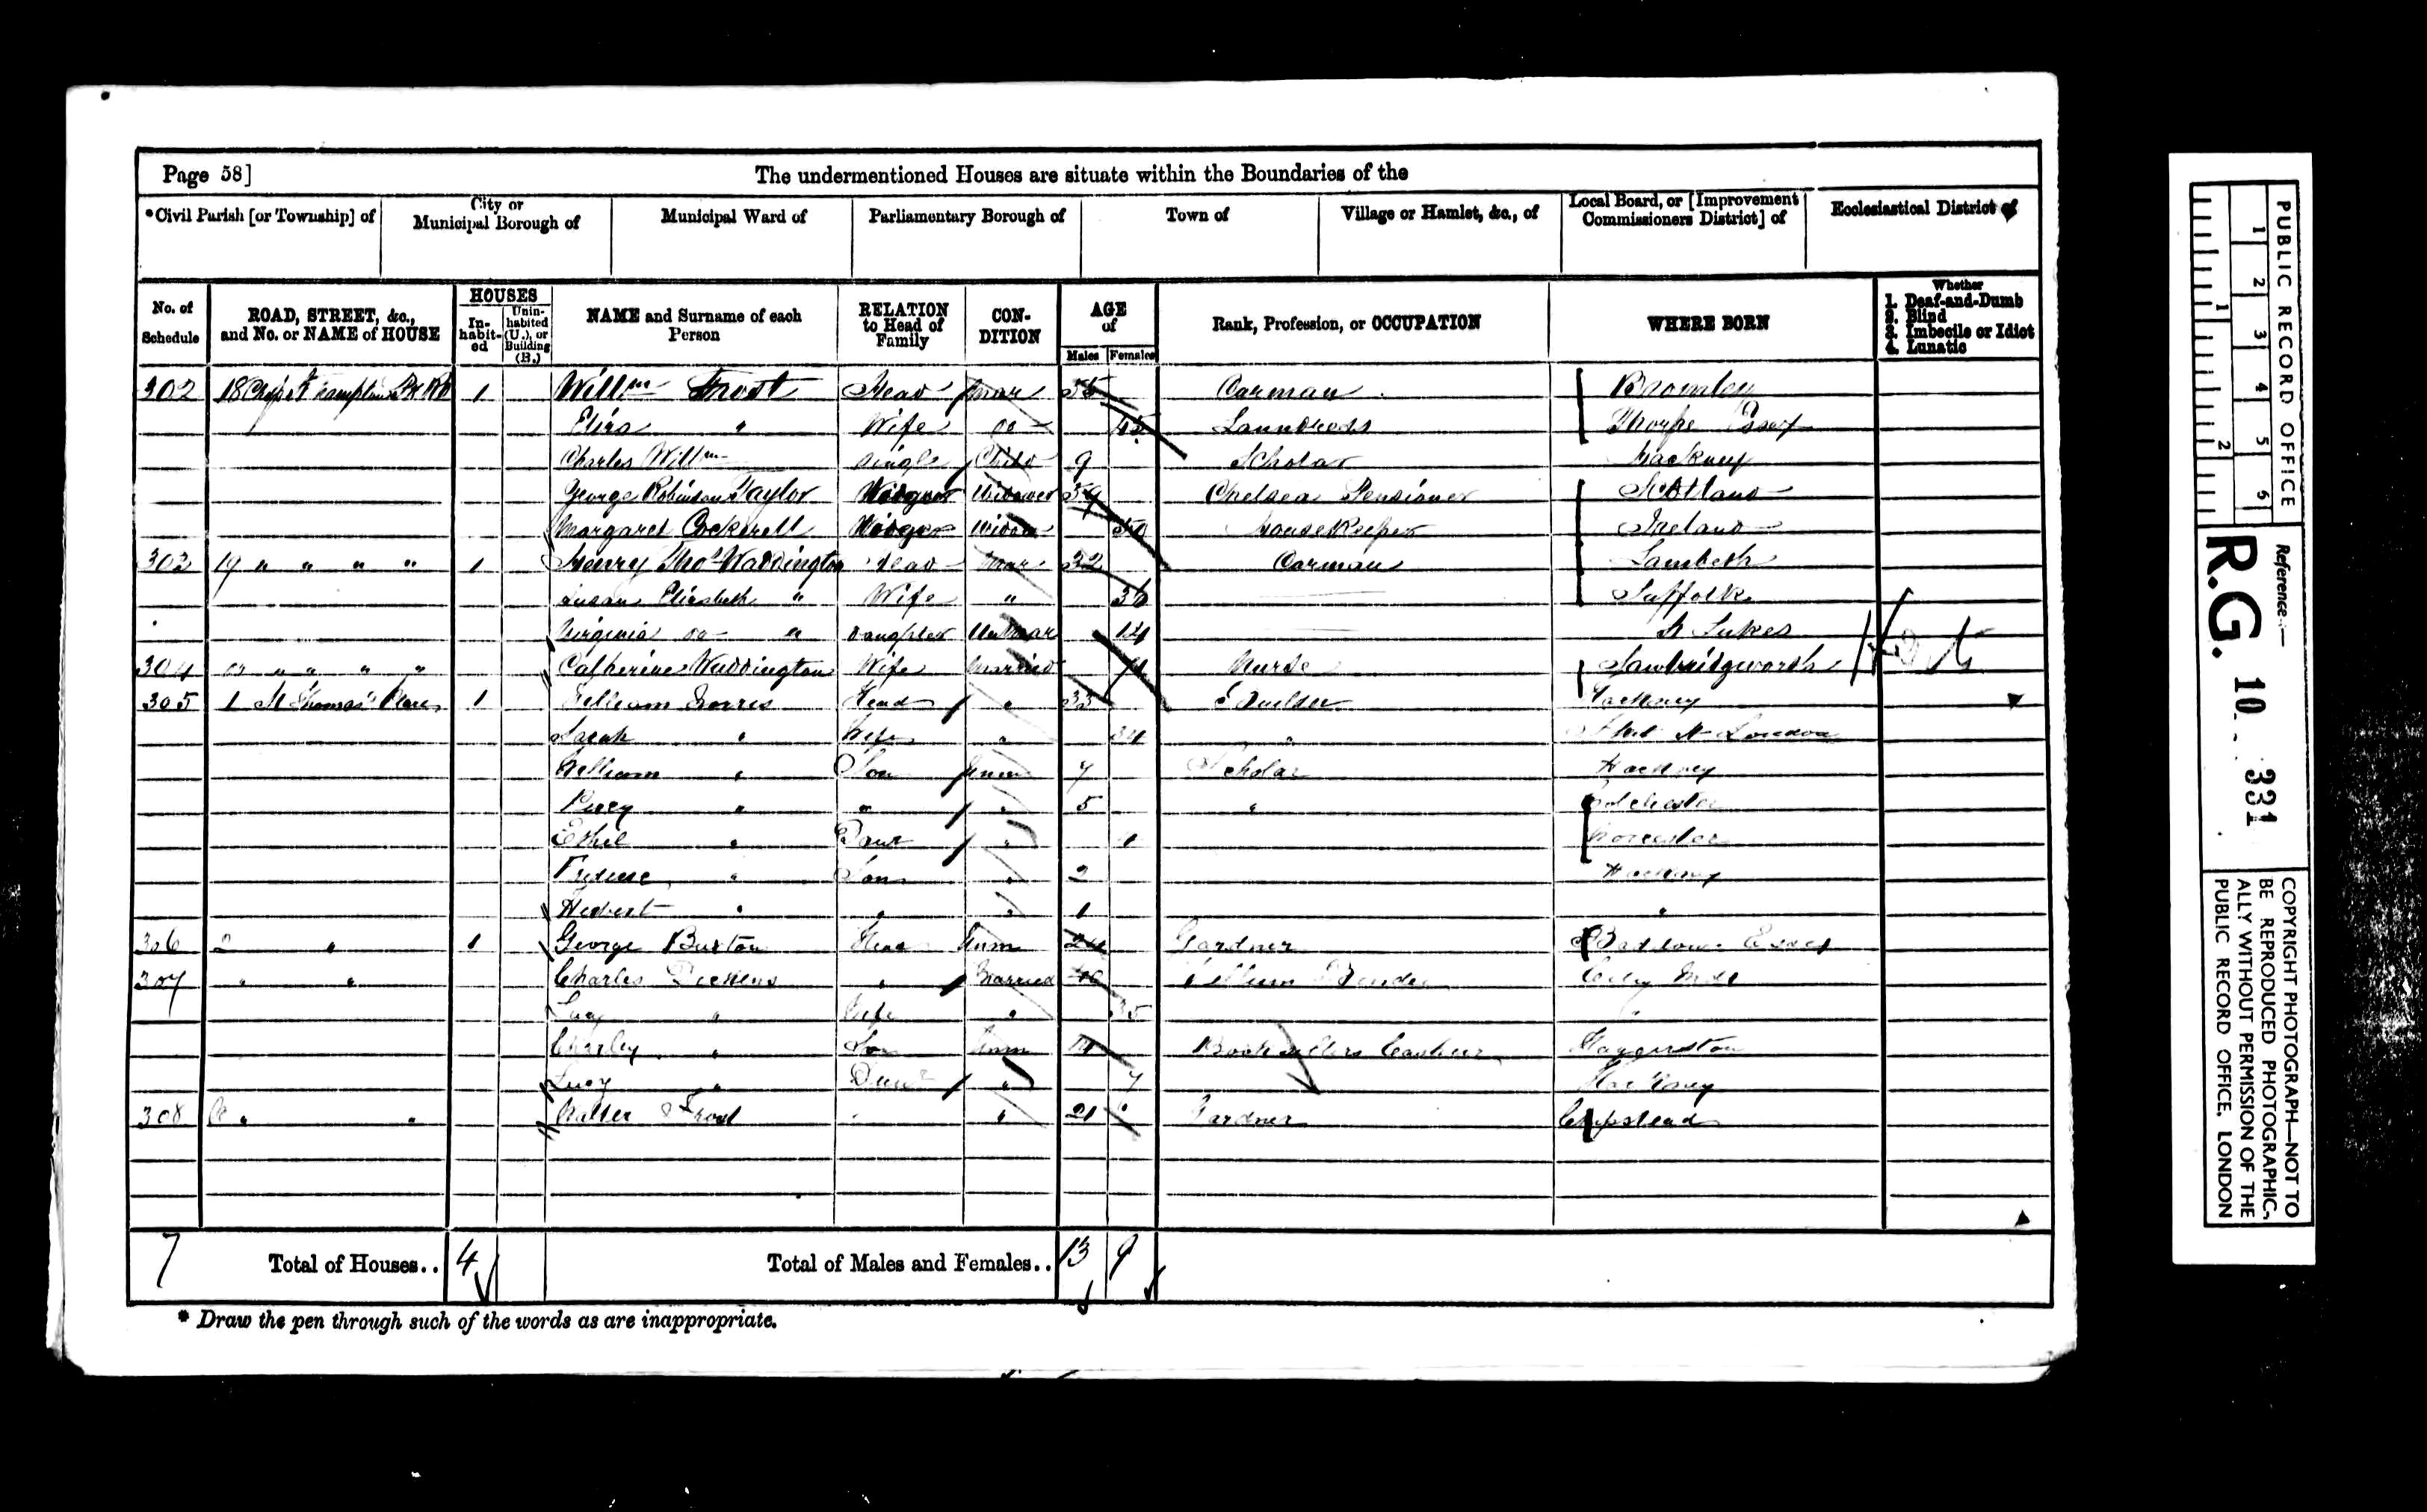 Page 58] The undermentioned Houses are situate within the Boundaries of the
*Civil Parish [or Township] of
City or Municipal Borough of
Municipal Ward of
Parliamentary Borough of
Town of
Village or Hamlet, &c., of
Local Board, or [Improvement Commissioners District] of
Ecclesiastical District of
No. of Schedule
ROAD, STREET, &c., and No. or NAME of HOUSE
HOUSES
In-habit-ed
Unin-habited (U.), or Building (B.)
NAME and Surname of each Person
RELATION to Head of Family
CON-DITION
AGE of
Males Females
Rank, Profession, or OCCUPATION
WHERE BORN
Whether
1. Deaf-and-Dumb
2. Blind
3. Imbecile or Idiot
4. Lunatic
302 18 1 Willm Frost Head Mar 55 Carman Bromley
Eliza " Wife do 45 Laundress Thorpe Essex
Charles Willm single Child 9 Scholar Hackney
George Robinson Taylor Widower 54 Chelsea Pensioner Scotland
Margaret Cockerell Widow 50 Housekeeper Ireland
303 19 " " " " 1 Henry Thos Waddington Head Mar 32 Carman Lambeth
Susan Elizabeth " Wife " 36 Suffolk
Virginia do " Daughter Unmar 14 St Lukes
304 do " " " " Catherine Waddington Wife Married Nurse Sawbridgeworth
305 1 St Thomas's Place 1 William Norris Head " 33 Builder Hackney
Sarah " Wife " 34 " London
William " Son Unm 7 Scholar Hackney
Percy " " " 5 " Colchester
Ethel " Daur " 4 Worcester
" Son " 2 Hackney
Herbert " " " 1 "
306 2 " 1 George Buxton Head Unm 24 Gardner Essex
307 " " Charles Dickens " Married 40 Vellum Binder
Lucy " Wife " 35 "
Charley " Son Unm 14 Booksellers Haggerston
Lucy " Daur " 7 Hackney
308 " " Walter Frost " 21 Gardner Chipstead
7 Total of Houses.. 4 Total of Males and Females.. 13 9
* Draw the pen through such of the words as are inappropriate.
PUBLIC RECORD OFFICE
1 2 3 4 5 6
1 2
Reference:—
R.G. 10 331
COPYRIGHT PHOTOGRAPH—NOT TO
BE REPRODUCED PHOTOGRAPHIC-
ALLY WITHOUT PERMISSION OF THE
PUBLIC RECORD OFFICE, LONDON